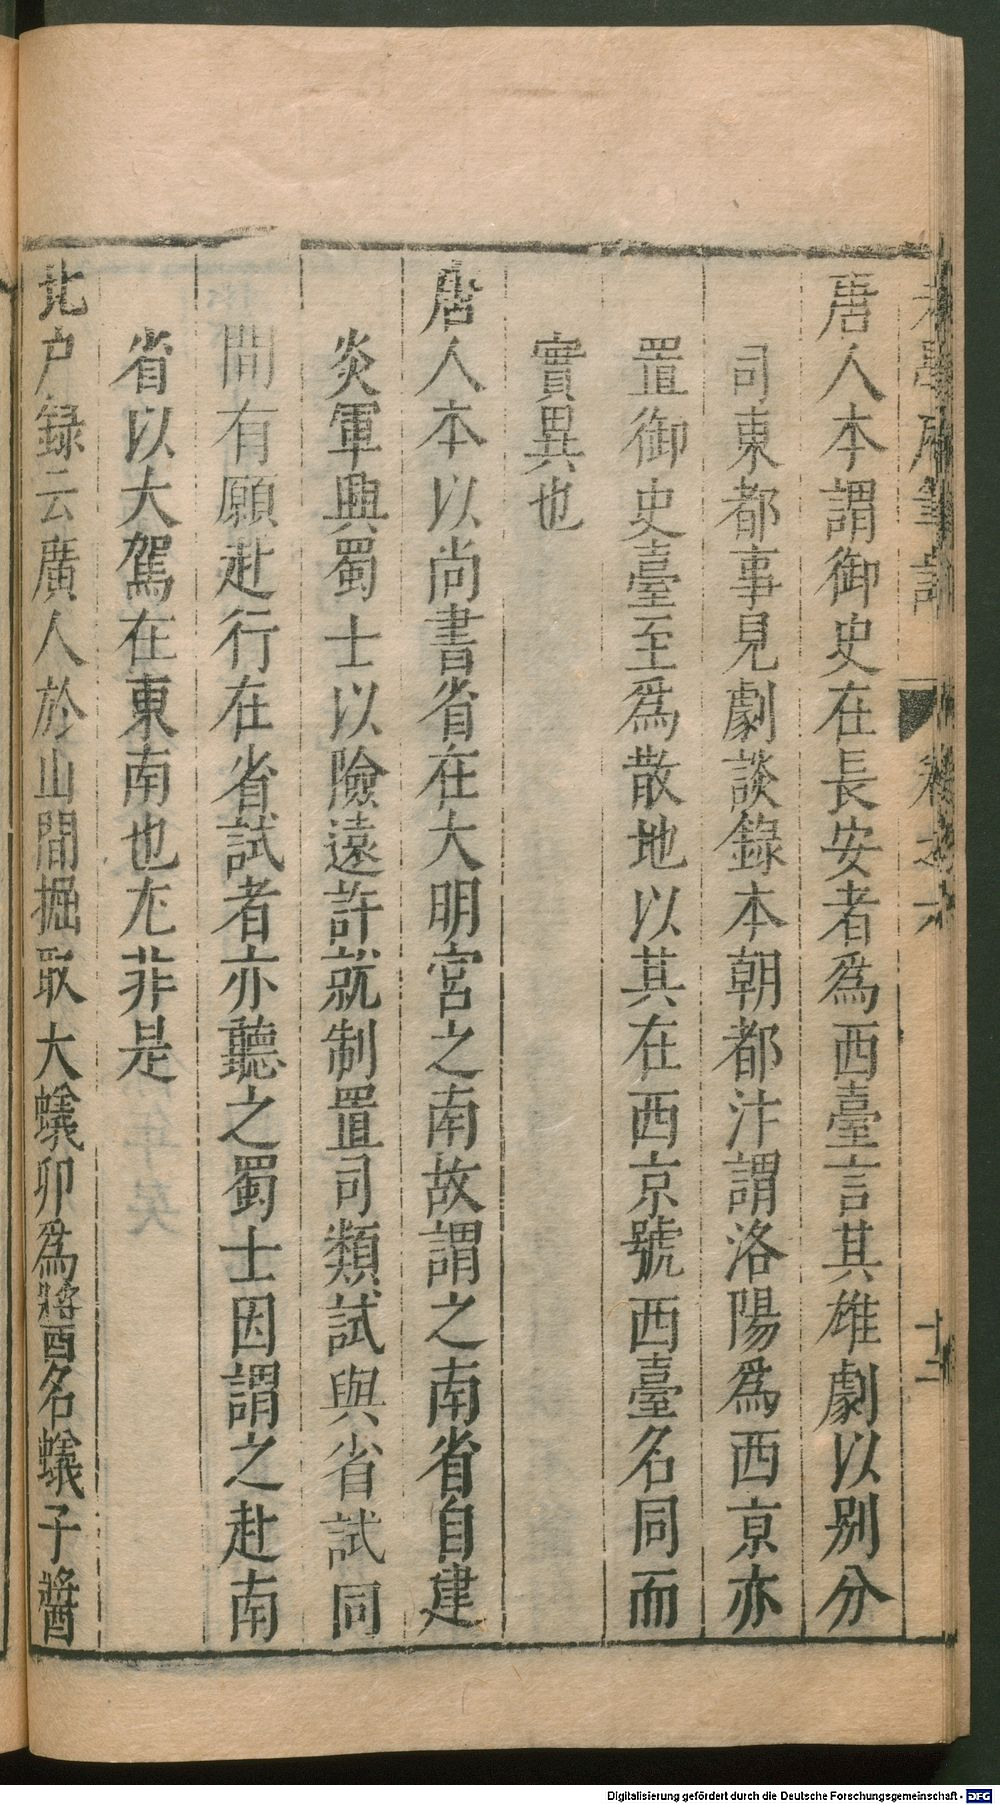 老學庵筆記 卷之六 十二
唐人本謂御史在長安者爲西臺言其雄劇以别分
司東都事見劇談錄本朝都汴謂洛陽爲西京亦
置御史臺至爲散地以其在西京號西臺名同而
實異也
唐人本以尚書省在大明宮之南故謂之南省自建
炎軍興蜀士以險遠許就制置司類試與省試同
間有願赴行在省試者亦聽之蜀士因謂之赴南
省以大駕在東南也尤非是
北户録云廣人於山間掘取大蟻卵爲醬名蟻子醬
Digitalisierung gefördert durch die Deutsche Forschungsgemeinschaft - DFG